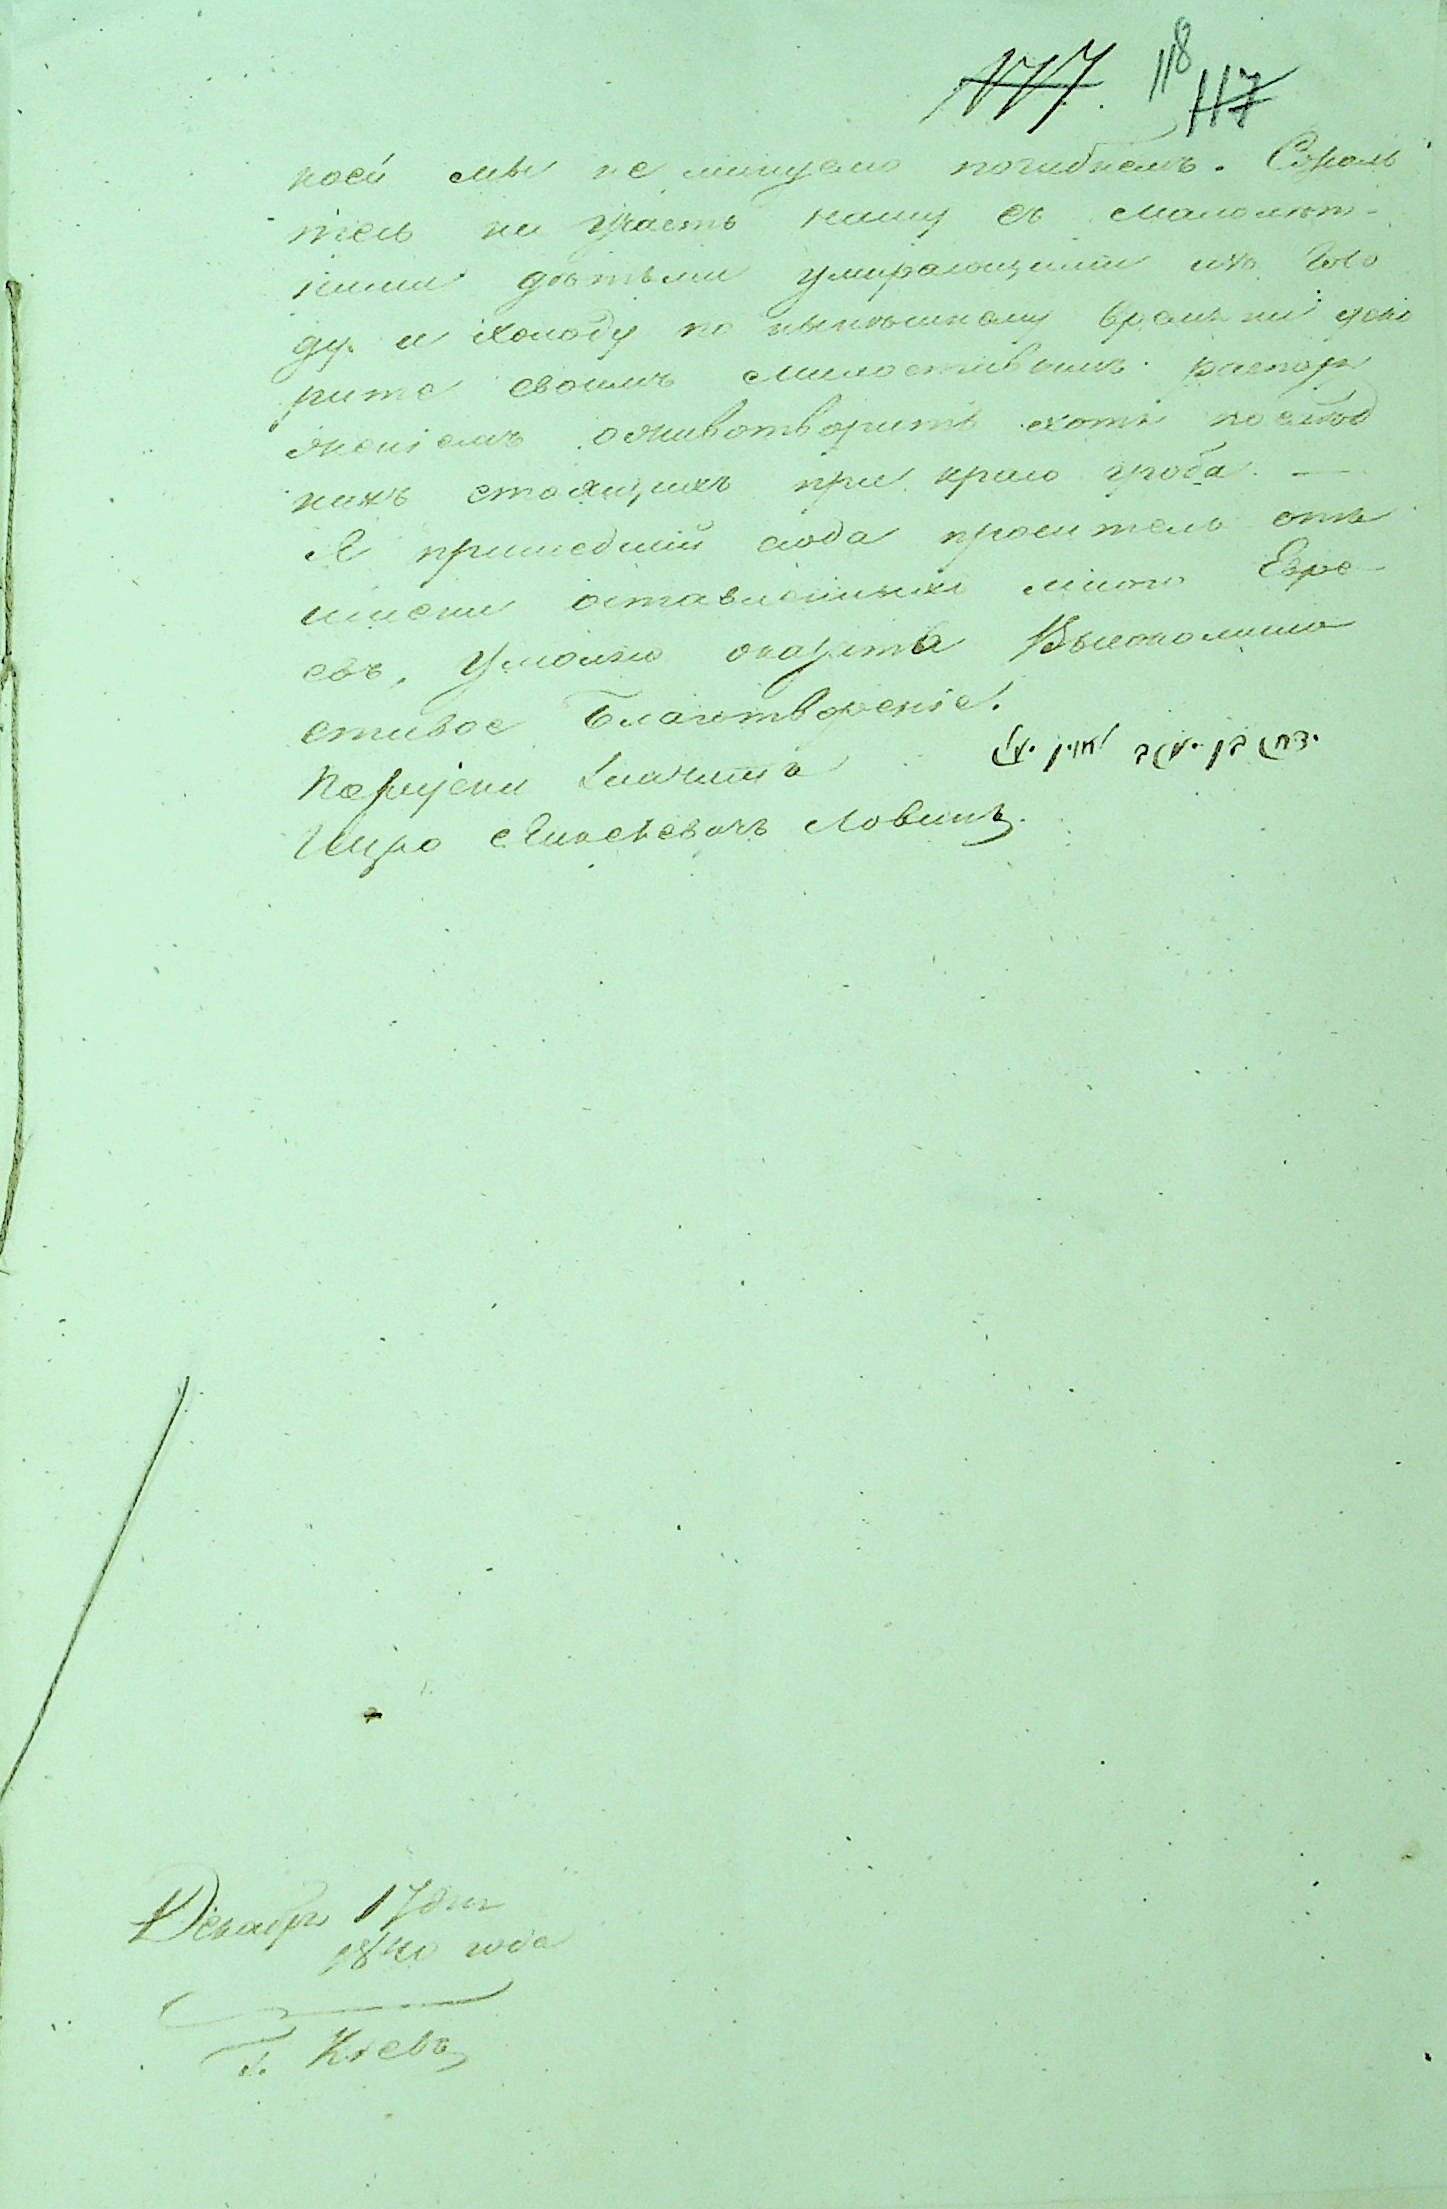 117. 118 117
коей мы не минуемо погибнемъ.
на участь нашу съ малолѣт-
ними дѣтьми умирающими
ду и холоду по нынѣшнему времени
рите своимъ милостивымъ распор
оживотворить хоть послѣд
нихъ стоящихъ при краю гроба. —
Я пришедшій сюда проситель отъ
имени оставленныхъ мною Евре-
евъ, умоляю оказать Высокомило
стивое Благотвореніе.
יצחק בן יעקב
Ловинъ
Декабря 17 дня
1840 года
Г. Кіевъ